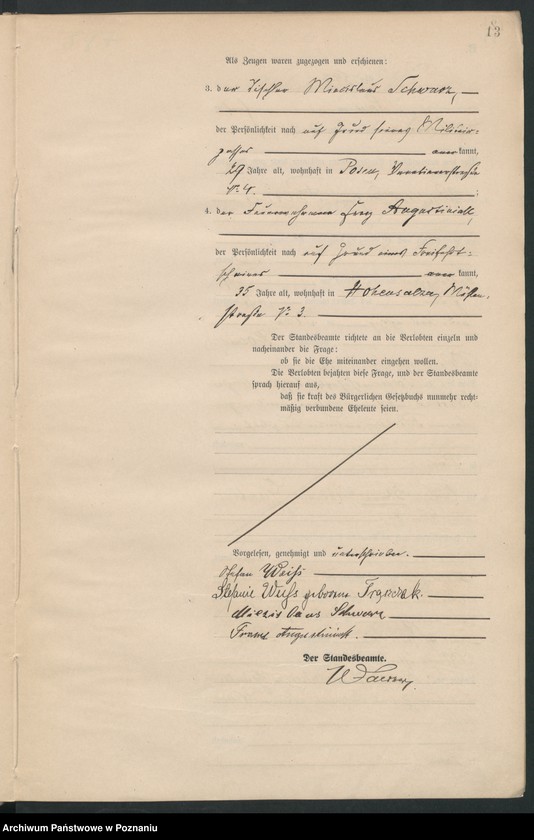 13
Als Zeugen waren zugezogen und erschienen:
3. der Tischler Miecislaus Schwarz,
der Persönlichkeit nach auf Grund seines Militär-
passes kannt,
29 Jahre alt, wohnhaft in Posen,
No 4. ;
4. der Franz Augustiniak,
der Persönlichkeit nach auf Grund eines
scheines kannt,
35 Jahre alt, wohnhaft in Hohensalza,
straße No 3.
Der Standesbeamte richtete an die Verlobten einzeln und
nacheinander die Frage:
ob sie die Ehe miteinander eingehen wollen.
Die Verlobten bejahten diese Frage, und der Standesbeamte
sprach hierauf aus,
daß sie kraft des Bürgerlichen Gesetzbuchs nunmehr recht-
mäßig verbundene Eheleute seien.
Vorgelesen, genehmigt und unterschrieben.
Stefan Weiß
Stefanie Weiß geborene
Miecislaus Schwarz
Franz Augustiniak.
Der Standesbeamte.
Archiwum Państwowe w Poznaniu